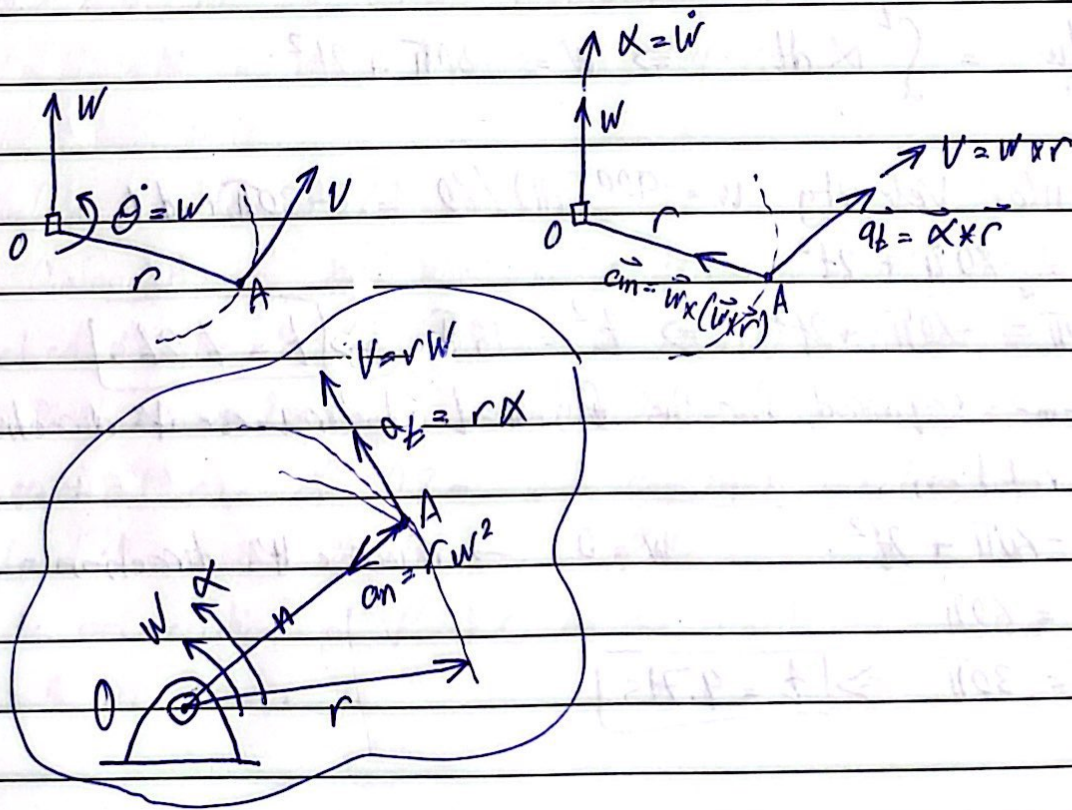 W
θ̇ = W
V
O
r
A
α = ẇ
W
V = w×r
O
r
a⃗t = α⃗ × r⃗
a⃗n = w⃗ × (w⃗ × r⃗)
A
V = rW
at = rα
A
an = rw²
α
W
r
O
r